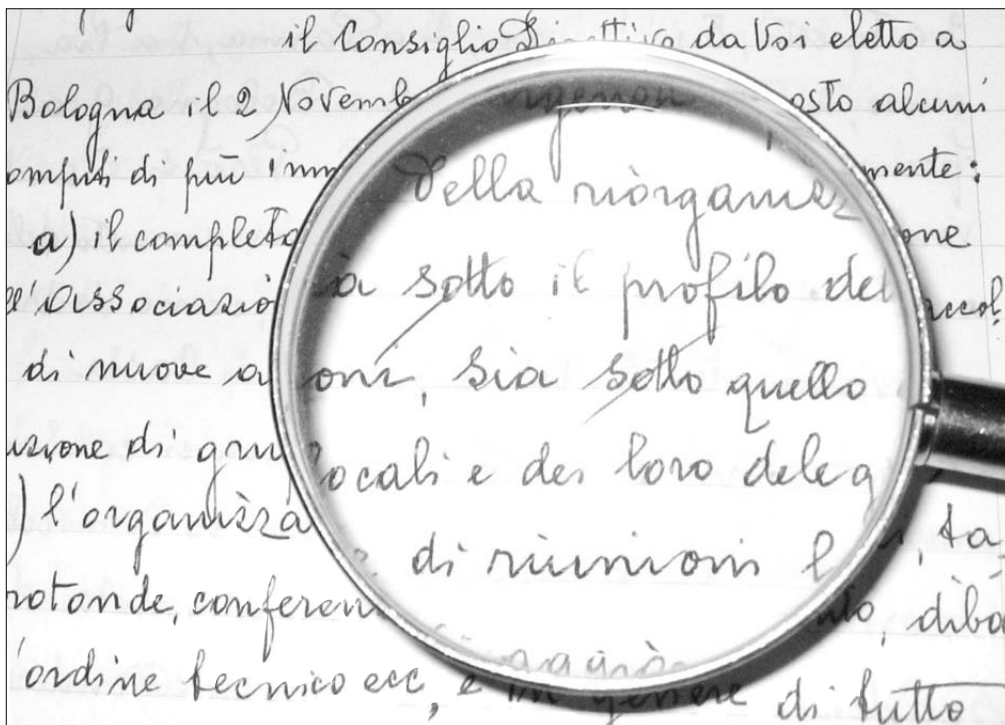 il Consiglio Direttivo da Voi eletto a
Bologna il 2 Novemb osto alcuni
ompiti di più mente:
della riorganizz
a) il completo one
l'Associazio ià sotto il profilo del accol
di nuove a oni, sia sotto quello
uzione di grup locali e dei loro deleg
) l'organizza di riunioni l , ta
rotonde, conferen io, diba
aggio
'ordine tecnico ecc, e in genere di tutto